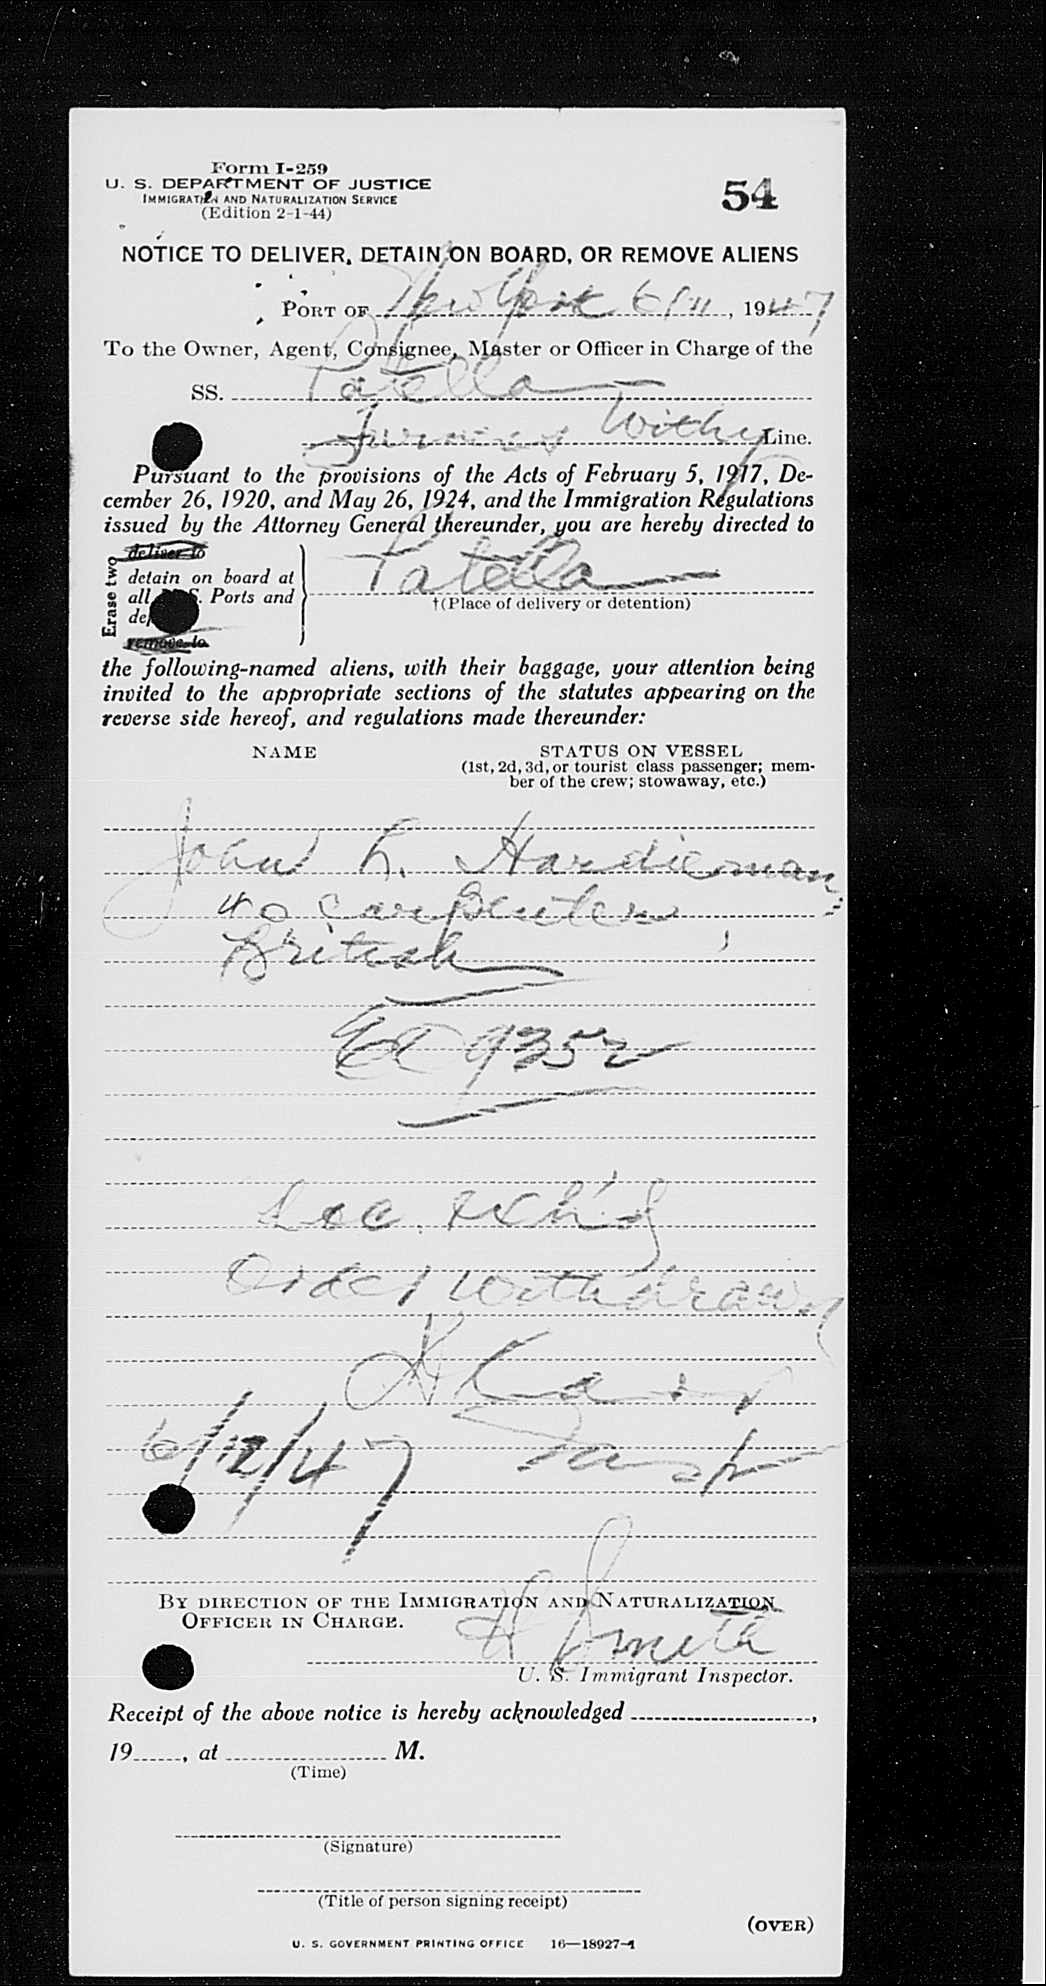 Form I-259
U. S. DEPARTMENT OF JUSTICE
IMMIGRATION AND NATURALIZATION SERVICE
(Edition 2-1-44)
54
NOTICE TO DELIVER, DETAIN ON BOARD, OR REMOVE ALIENS
PORT OF New York 6/11, 1947
To the Owner, Agent, Consignee, Master or Officer in Charge of the
SS. Patella
Furness Withy Line.
Pursuant to the provisions of the Acts of February 5, 1917, De-
cember 26, 1920, and May 26, 1924, and the Immigration Regulations
issued by the Attorney General thereunder, you are hereby directed to
Erase two
deliver to
detain on board at
all U. S. Ports and
remove to
Patella
†(Place of delivery or detention)
the following-named aliens, with their baggage, your attention being
invited to the appropriate sections of the statutes appearing on the
reverse side hereof, and regulations made thereunder:
NAME STATUS ON VESSEL
(1st, 2d, 3d, or tourist class passenger; mem-
ber of the crew; stowaway, etc.)
John L. Hardieman,
40 Carpenter
British
9352
Doc. exh'd
Order withdrawn
6/12/47
BY DIRECTION OF THE IMMIGRATION AND NATURALIZATION
OFFICER IN CHARGE.
Smith
U. S. Immigrant Inspector.
Receipt of the above notice is hereby acknowledged ,
19 , at M.
(Time)
(Signature)
(Title of person signing receipt)
(OVER)
U. S. GOVERNMENT PRINTING OFFICE 16—18927-1